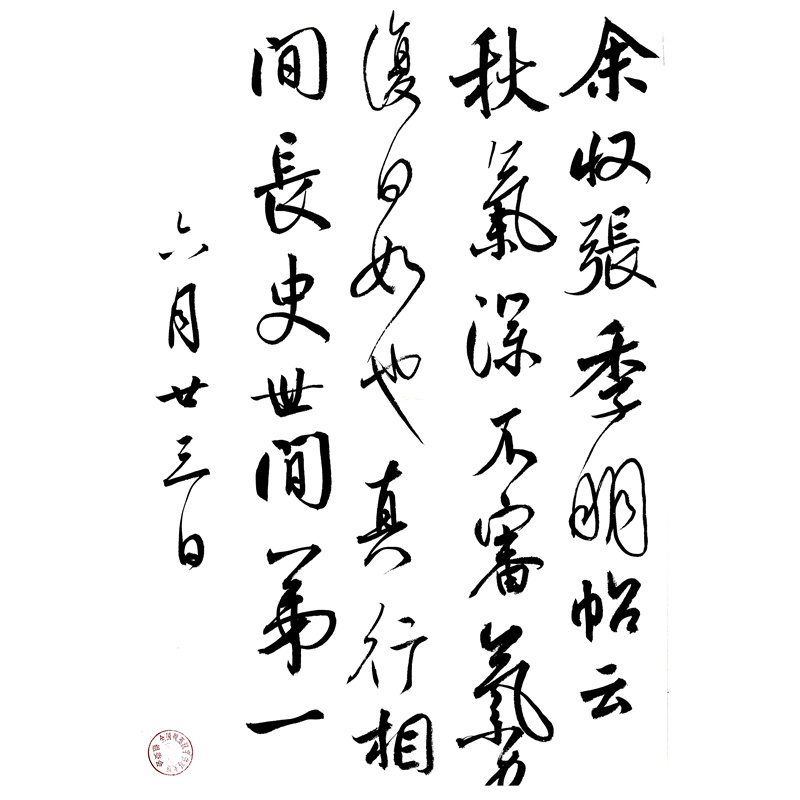 余収張季明帖云
秋氣深不審氣力
復何如也真行相
間長史世間第一
六月廿三日